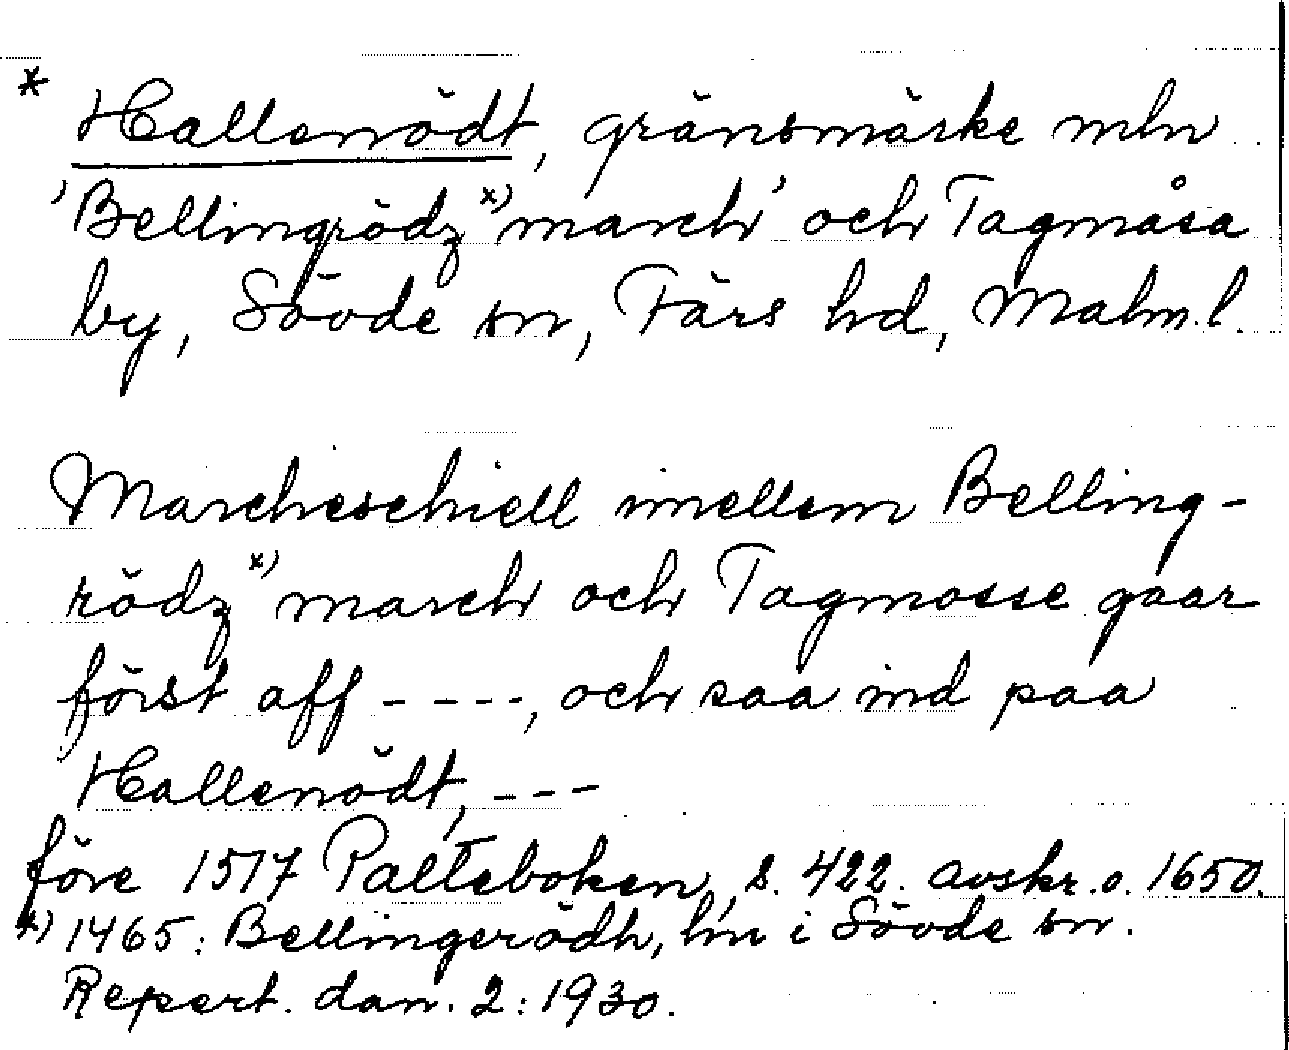 * Hallenödt, gränsmärke mln
'Bellingrödz *) march' och Tagmåsa
by, Sövde sn, Färs hd, Malm.l.
Marcheschiell imellem Belling-
rödz *) march och Tagmosse gaar
först aff ----, och saa ind paa
Hallenödt, ---
före 1517 Palteboken, s. 422. avskr.o. 1650.
*) 1465: Bellingerödh, hn i Sövde sn.
Repert. dan. 2: 1930.